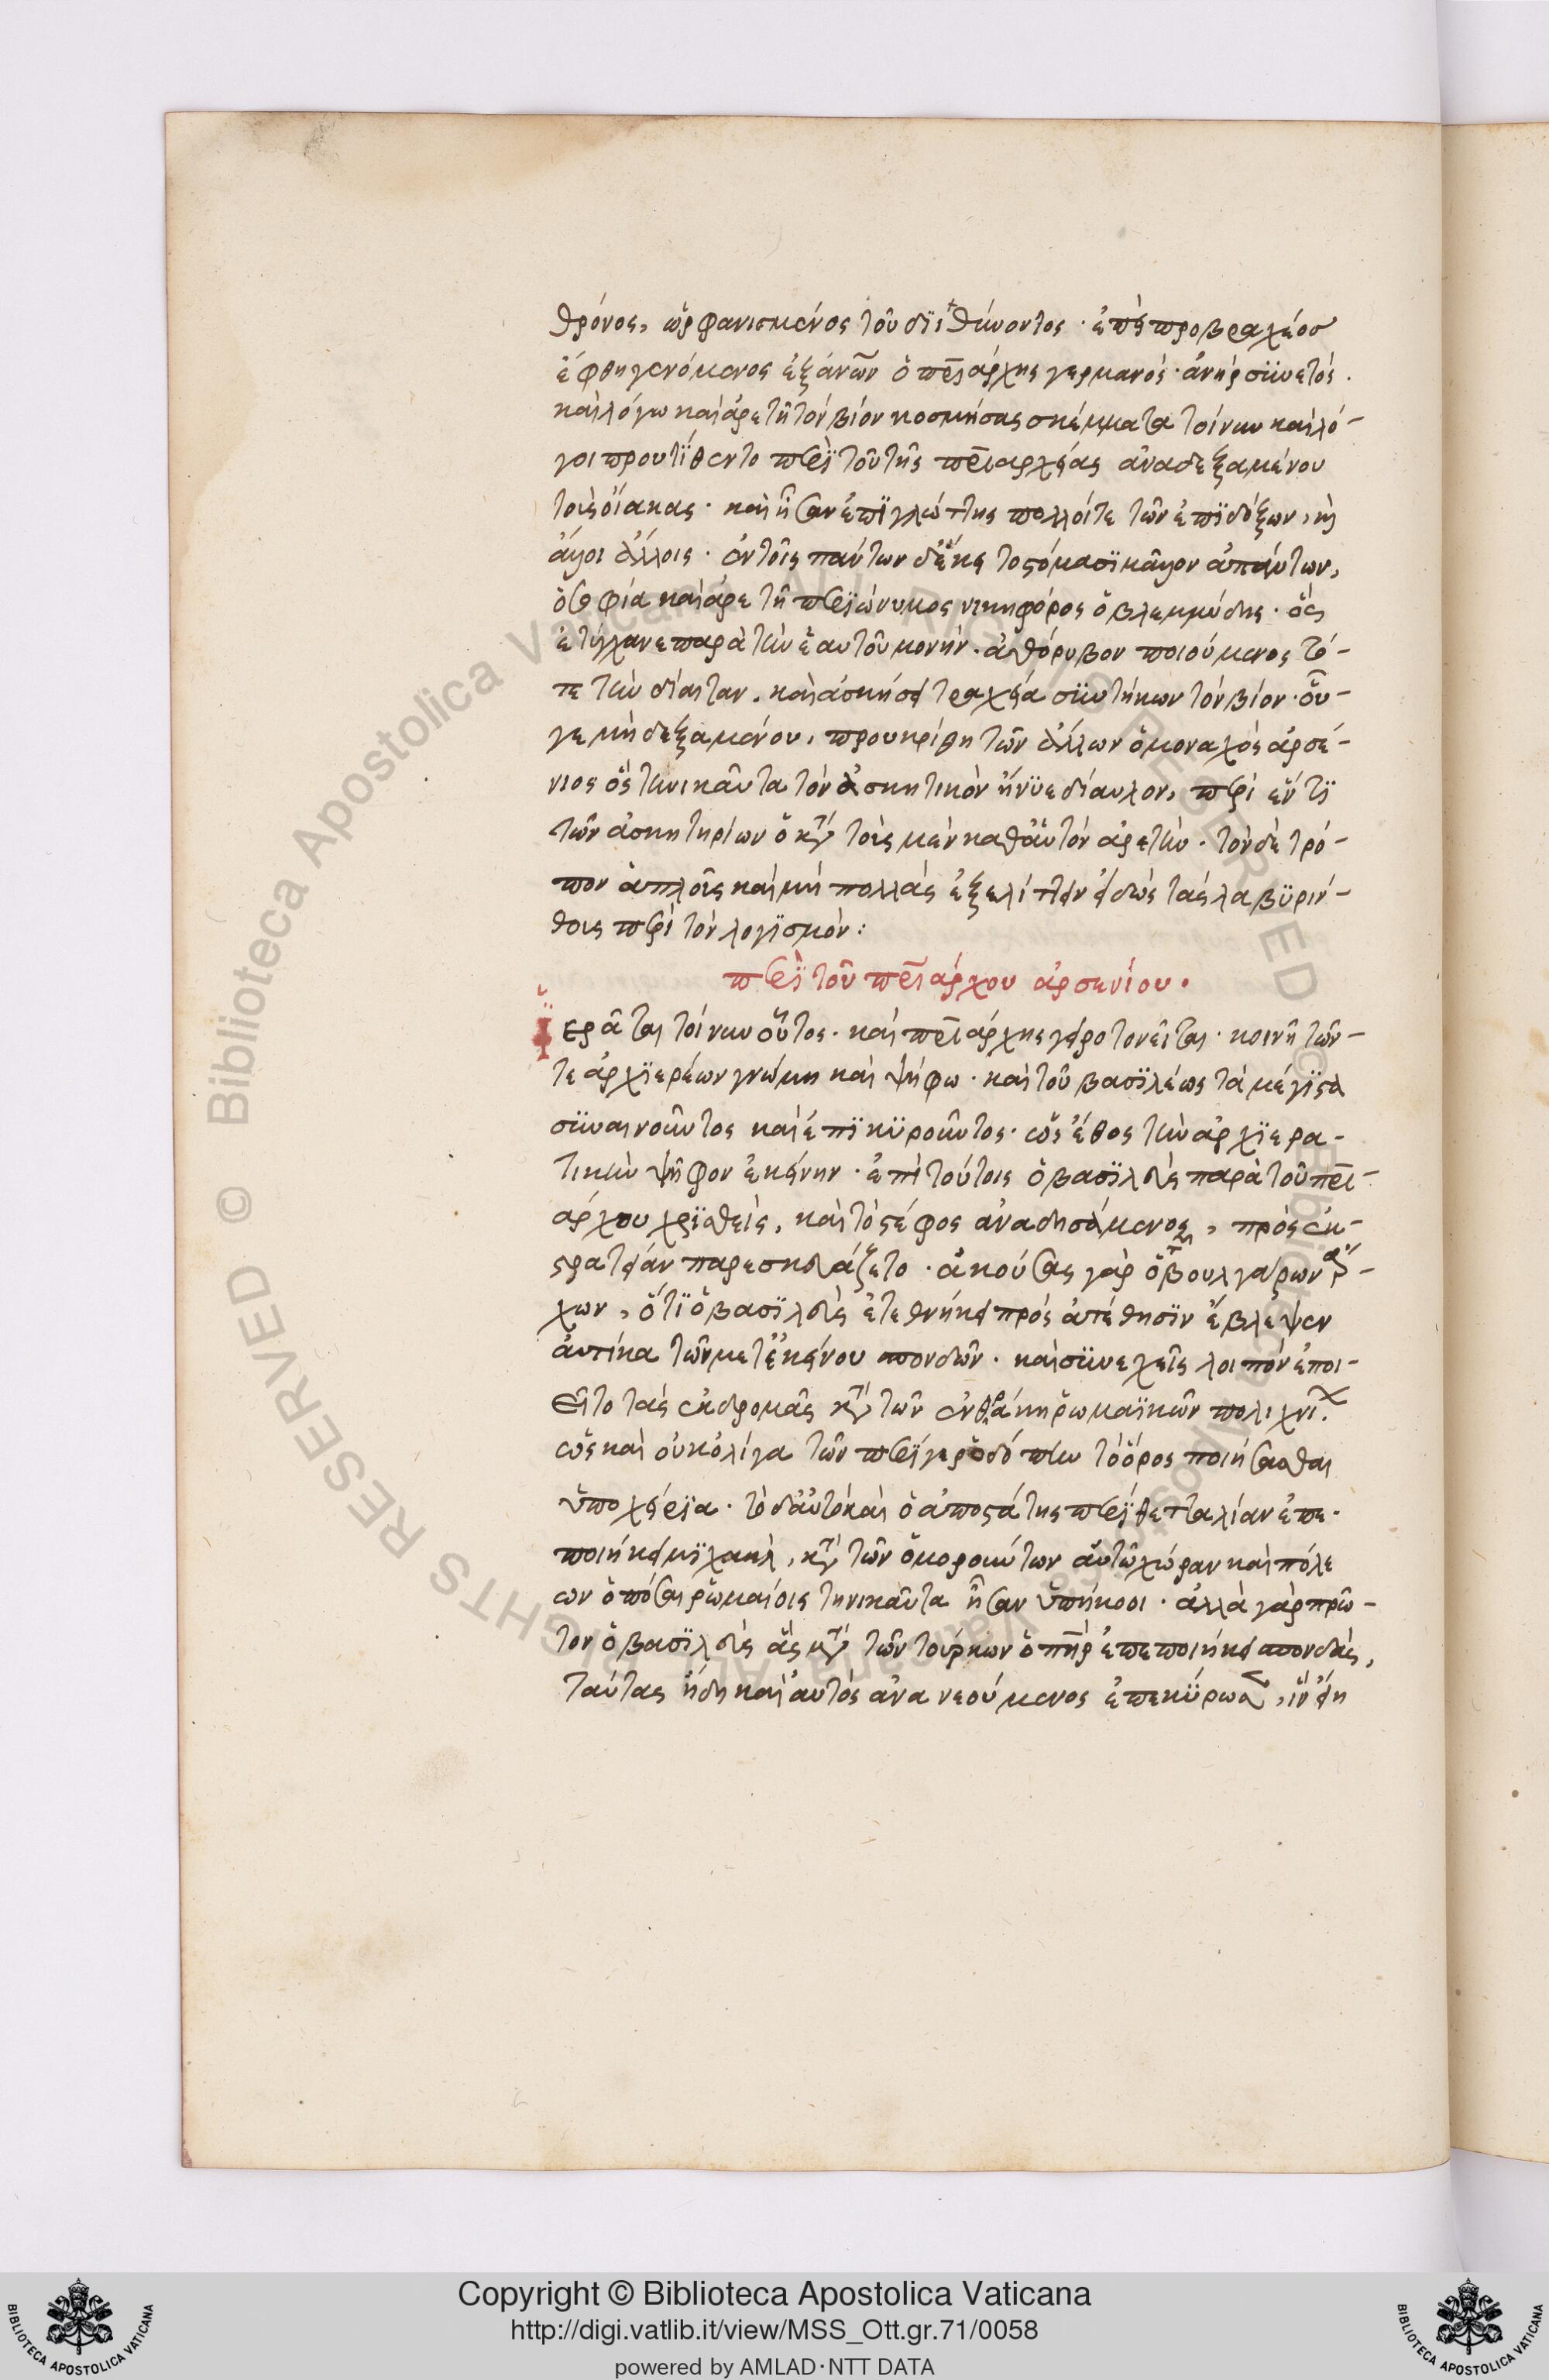 θρόνος, ὠρφανισμένος τοῦ διϊθύνοντος· ἐπεὶ προβραχέος
ἔφθη γενόμενος ἐξ ἀνων ὁ πριάρχης γερμανός· ἀνὴρ συνετός.
καὶ λόγω καὶ ἀρετῆ τὸν βίον κοσμήσας σκέμματα τοίνυν καὶ λό-
γοι προυτίθεντο περὶ τοῦ τῆς πριαρχείας ἀναδεξαμένου
τοὺς οἴακας· καὶ ἦσαν ἐπὶ γλώττης πολλοί τε τῶν ἐπιδόξων, καὶ
ἄγοι ἄλλοις· ἐν τοῖς πάντων δἔκειτο στόμασι μᾶλλον ἁπάντων,
ὁ σοφία καὶ ἀρετῆ περιώνυμος νικηφόρος ὁ βλεμμύδης· ὃς
ἐτύγχανε παρὰ τὴν ἑαυτοῦ μονὴν. ἀθόρυβον ποιούμενος τό-
τε τὴν δίαιταν. καὶ ἀσκήσει τραχεία συντήκων τὸν βίον· οὗ
γε μὴ δεξαμένου, προυκρίθη τῶν ἄλλων ὁ μοναχὸς ἀρσέ-
νιος ὃς τηνικαῦτα τὸν ἀσκητικὸν ἤνυε δίαυλον, περὶ ἕν τι
τῶν ἀσκητηρίων ὁ κατὰ τοὺς μὲν καθαὑτὸν ἀρετὴν. τὸν δὲ τρό-
πον ἁπλοῦς καὶ μὴ πολλὰς ἐξελίττειν εἰδὼς τὰς λαβυρίν-
θους περὶ τὸν λογισμόν:
περὶ τοῦ πριάρχου ἀρσενίου.
Ἱερᾶται τοίνυν οὗτος. καὶ πριάρχης χειροτονεῖται· κοινῆ τῶν
τε ἀρχιερέων γνώμη καὶ ψήφω. καὶ τοῦ βασιλέως τὰ μέγιστα
συναινοῦντος καὶ ἐπικυροῦντος· ὡς ἔθος τὴν ἀρχιερα-
τικὴν ψῆφον ἐκείνην. ἐπὶ τούτοις ὁ βασιλεὺς παρὰ τοῦ πρι-
άρχου χρισθεὶς, καὶ τὸ στέφος ἀναδησάμενος, πρὸς ἐκ-
στρατείαν παρεσκευάζετο. ἀκούσας γὰρ ὁ τῶν βουλγάρων ἄρ-
χων, ὅτι ὁ βασιλεὺς ἐτεθνήκει πρὸς ἀπέθησιν ἔβλεψεν
αὐτίκα τῶν μετἐκείνου σπονδῶν. καὶ συνεχεῖς λοιπὸν ἐποι-
εῖτο τὰς ἐκδρομὰς κατὰ τῶν ἐν θράκη ῥωμαϊκῶν πολιχνί.
ὡς καὶ οὐκ ὀλίγα τῶν περί γε ῥοδόπην τὸ ὄρος ποιήσασθαι
ὑποχείρια. τὸ δαὐτὸ καὶ ὁ ἀποστάτης περὶ θετταλίαν ἐπε-
ποιήκει μιχαὴλ, κατὰ τῶν ὁμορούντων αὐτῶ χώραν καὶ πόλε
ων ὁπόσαι ῥωμαίοις τηνικαῦτα ἦσαν ὑπήκοοι. ἀλλὰ γὰρ πρῶ-
τον ὁ βασιλεὺς ἃς κατὰ τῶν τούρκων ὁ πηρ ἐπεποιήκει σπονδὰς,
ταύτας ἤδη καὶ αὐτὸς ἀνανεούμενος ἐπεκύρωσεν, ἵν εἴη
Copyright © Biblioteca Apostolica Vaticana
http://digi.vatlib.it/view/MSS_Ott.gr.71/0058
powered by AMLAD·NTT DATA